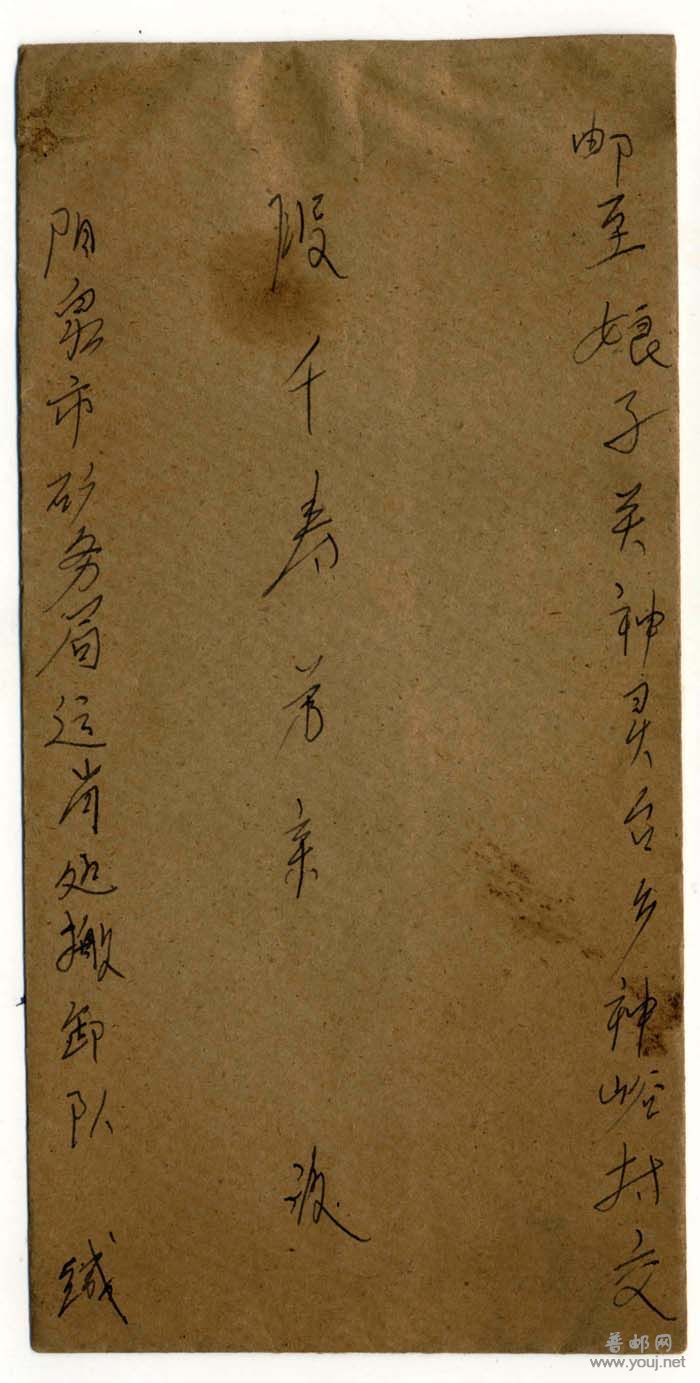 邮至娘子关神灵台乡神峪村交
段千寿芳亲 收
阳泉市矿务局运岗处搬卸队 缄
普邮网
www.youj.net